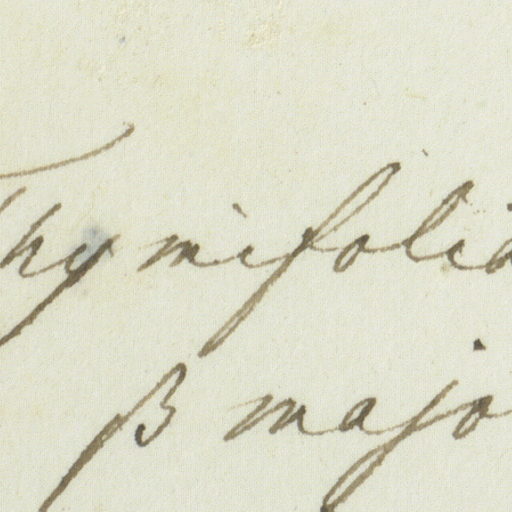 Thymifolia
β majo